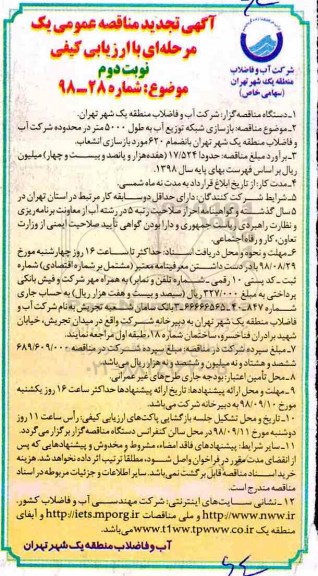 آگهی تجدید مناقصه عمومی یک
مرحله‌ای با ارزیابی کیفی
نوبت دوم
موضوع: شماره ۲۸-۹۸
شرکت آب و فاضلاب
منطقه یک شهر تهران
(سهامی خاص)
۱-دستگاه مناقصه گزار: شرکت آب و فاضلاب منطقه یک شهر تهران.
۲-موضوع مناقصه: بازسازی شبکه توزیع آب به طول ۵۰۰۰ متر در محدوده شرکت آب
و فاضلاب منطقه یک شهر تهران بانضمام ۶۲۰ مورد بازسازی انشعاب.
۳-برآورد مبلغ مناقصه: حدوداً ۱۷/۵۲۴ (هفده‌هزار و پانصد و بیست و چهار) میلیون
ریال بر اساس فهرست بهای پایه سال ۱۳۹۸.
۴-مدت کار: از تاریخ ابلاغ قرارداد به مدت نه ماه شمسی.
۵-شرایط شرکت کنندگان: دارای حداقل دو سابقه کار مرتبط در استان تهران در
۵ سال گذشته و گواهینامه احراز صلاحیت رتبه ۵ در رشته آب از معاونت برنامه ریزی
و نظارت راهبردی ریاست جمهوری و دارا بودن گواهی تأیید صلاحیت ایمنی از وزارت
تعاون، کار و رفاه اجتماعی.
۶-مهلت و نحوه و محل دریافت اسناد: حداکثر تا ساعت ۱۶ روز چهارشنبه مورخ
۹۸/۰۸/۲۹ با در دست داشتن معرفینامه معتبر (مشتمل بر شماره اقتصادی) شماره
ثبت - کد پستی ۱۰ رقمی - شماره تلفن و نمابر) به همراه مهر شرکت و فیش بانکی
پرداختی به مبلغ ۳۲۷/۰۰۰ ریال (سیصد و بیست و هفت هزار ریال) به حساب جاری
شماره بانک سامان شعبه تجریش به نام شرکت آب و
فاضلاب منطقه یک شهر تهران به دبیرخانه شرکت واقع در میدان تجریش، خیابان
شهید برادران فناخسرو، ساختمان شماره ۱۸، طبقه اول مراجعه نمایند.
۷-مبلغ سپرده شرکت در مناقصه: مبلغ سپرده شرکت در مناقصه ۶۸۹/۶۰۹/۰۰۰
ششصد و هشتاد و نه میلیون و ششصد و نه هزار ریال می‌باشد.
۸-محل تأمین اعتبار: بودجه جاری طرح‌های غیر عمرانی
۹-مهلت و محل ارائه پیشنهادها: تاریخ ارائه پیشنهادها حداکثر ساعت ۱۶ روز یکشنبه
مورخ ۹۸/۰۹/۱۰ به دبیرخانه شرکت می‌باشد.
۱۰-تاریخ و محل تشکیل جلسه بازگشایی پاکت‌های ارزیابی کیفی: رأس ساعت ۱۱ روز
دوشنبه مورخ ۹۸/۰۹/۱۱ در محل سالن کنفرانس دستگاه مناقصه گزار برگزار می گردد.
۱۱-سایر شرایط: پیشنهادهای فاقد امضاء، مشروط و مخدوش و پیشنهادهایی که پس
از انقضای مدت مقرر در فراخوان واصل شود، مطلقاً ترتیب اثر داده نخواهد شد. هزینه
خرید اسناد مناقصه قابل برگشت نمی‌باشد. سایر اطلاعات و جزئیات مربوطه در اسناد
مناقصه مندرج است.
۱۲-نشانی سایت‌های اینترنتی: شرکت مهندسی آب و فاضلاب کشور.
http://www.nww.ir و ملی مناقصات http://iets.mporg.ir و آبفای
منطقه یک www.t1ww.tpww.co.ir می‌باشد.
آب و فاضلاب منطقه یک شهر تهران